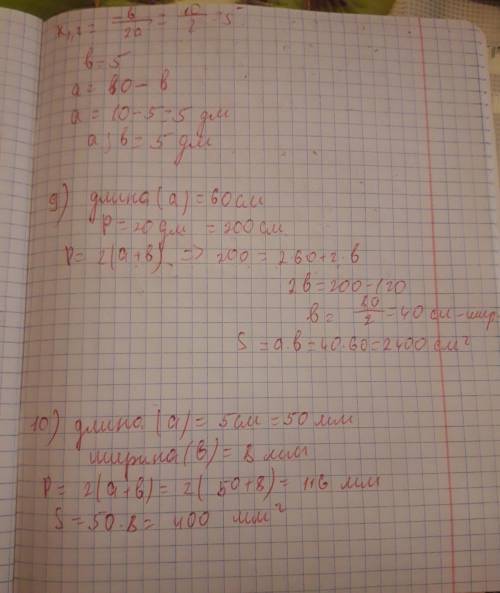 x₁,₂ = b/2a = 10/2 = 5
b = 5
a = 10 - b
a = 10 - 5 = 5 дм
a ; b = 5 дм
9) длина (a) = 60 см
P = 20 дм = 200 см
P = 2(a+b) => 200 = 2·60+2·b
2b = 200-120
b = 80/2 = 40 см - шир.
S = a·b = 40·60 = 2400 см²
10) длина (a) = 5 см = 50 мм
ширина (b) = 8 мм
P = 2(a+b) = 2(50+8) = 116 мм
S = 50·8 = 400 мм²